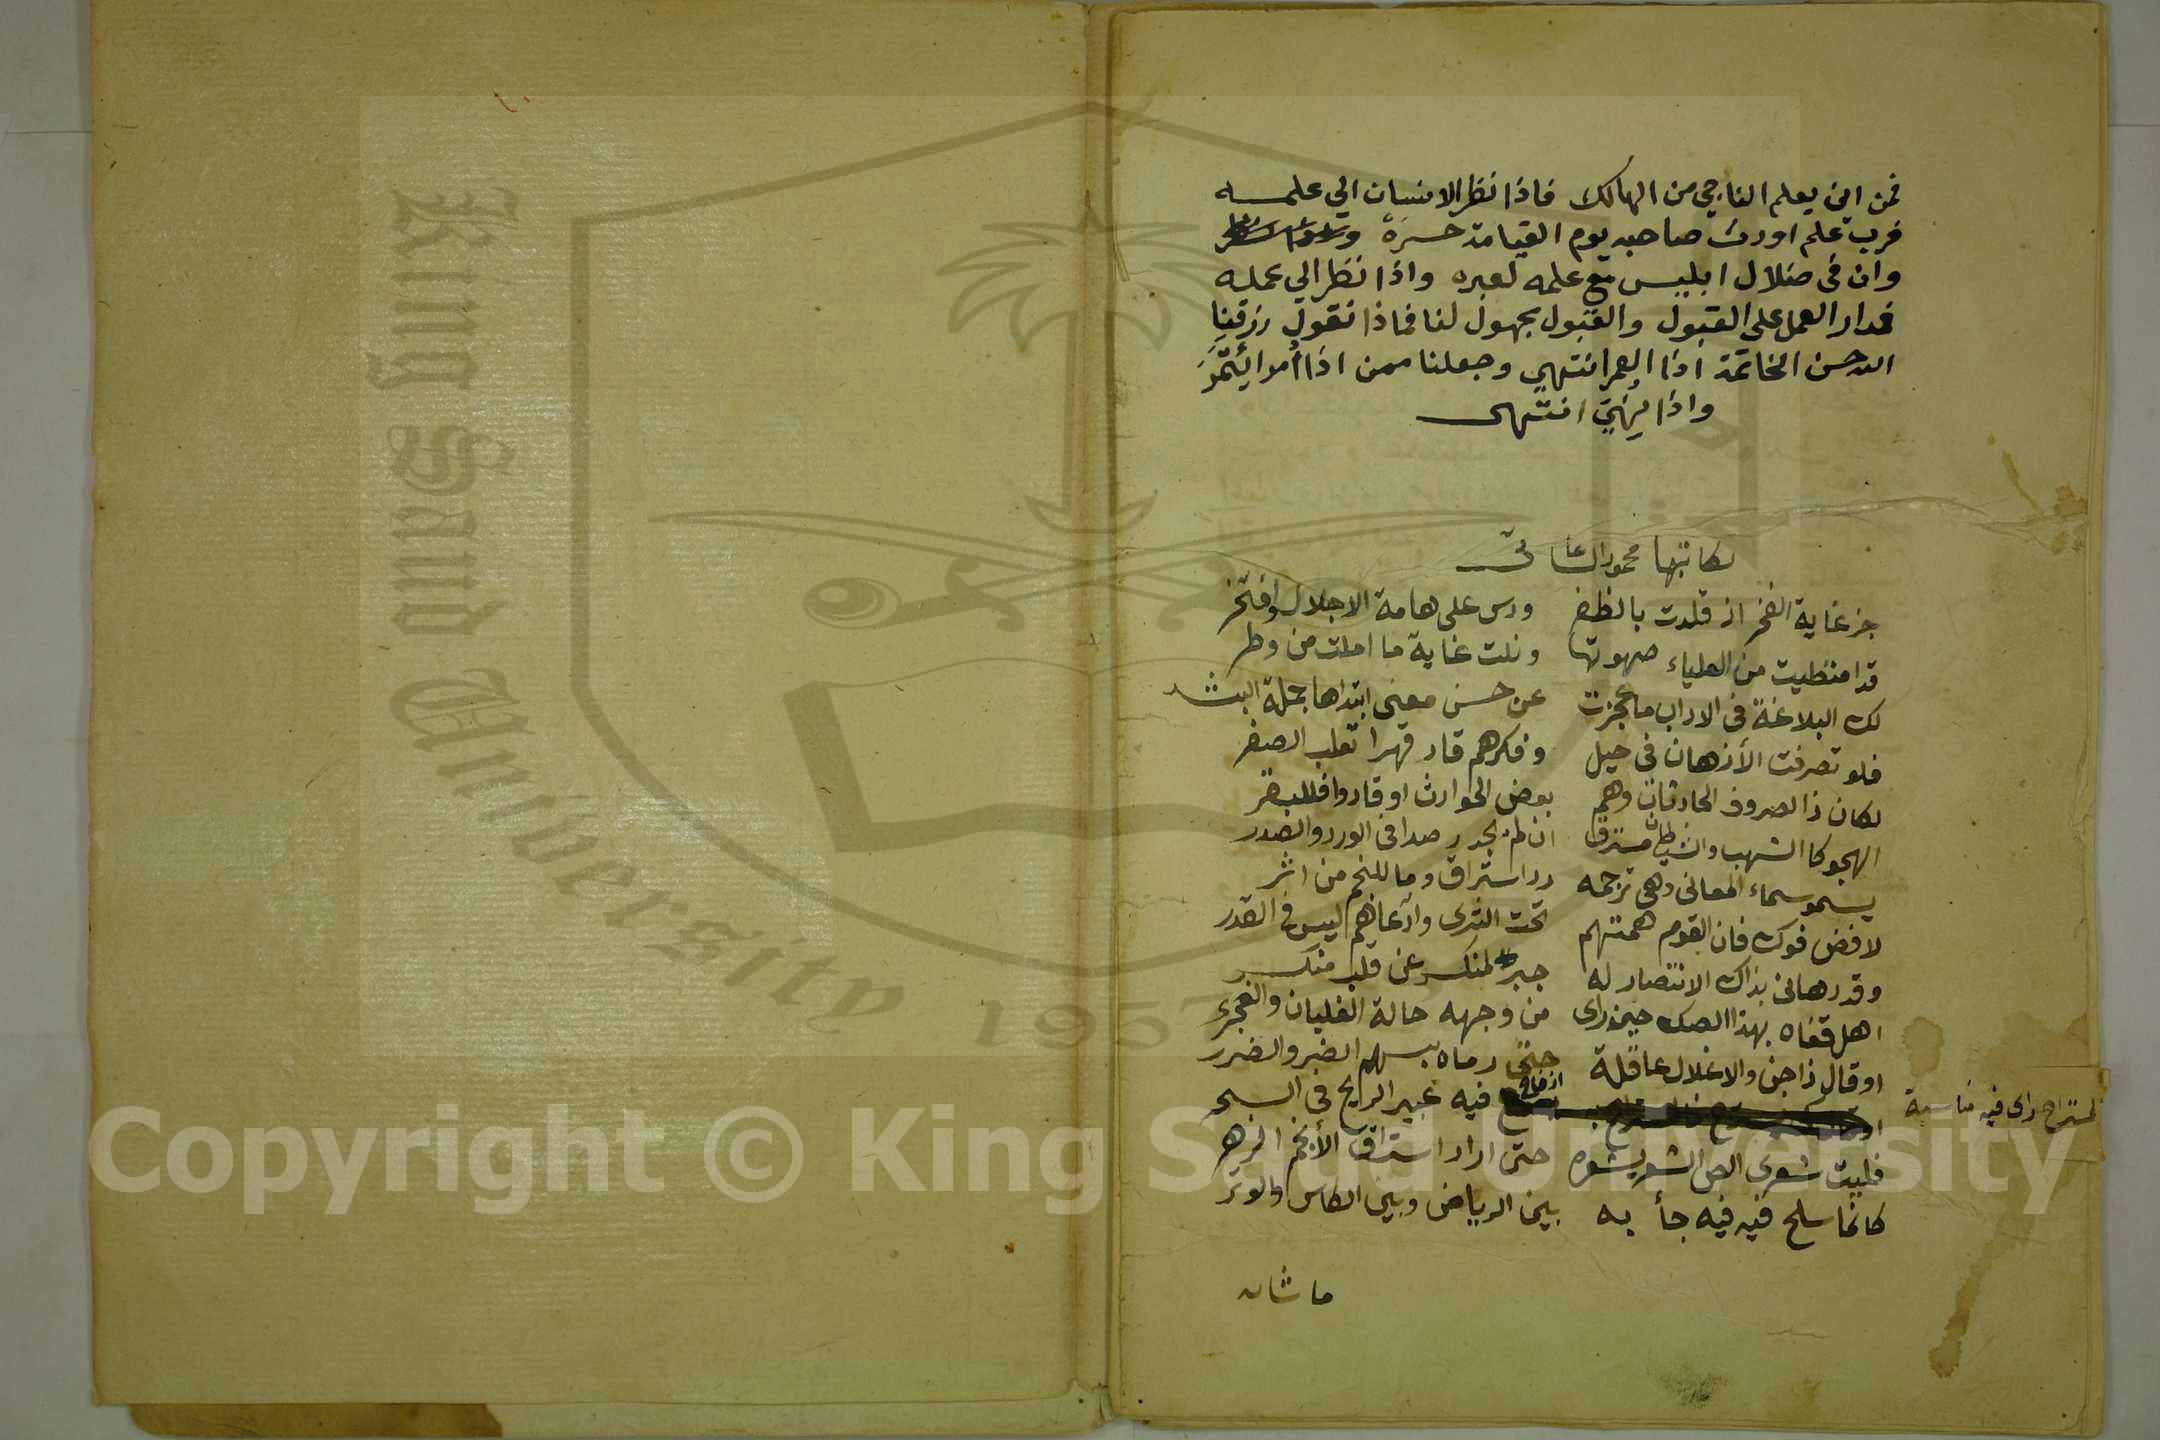 فمن اين يعلم الناجي من الهالك فاذا نظر الانسان الي علمه
فرب علم اورث صاحبه يوم القيامة حسرة
وان في ضلال ابليس مع علمه لعبره واذا نظر الي عمله
فمدار العمل على القبول والقبول مجهول لنا فماذا نقول رزقنا
الله حسن الخاتمة اذا العمر انتهي وجعلنا ممن اذا أُمر ايئتمَرَ
واذا يُنهيَ انتهى
لكاتبها محمود
حز غاية الفخر اذ قلدت بالظفر ودس على هامة الاجلال وافتخر
قد امتطيت من العلياء صهوتها ونلت غاية ما املت من وطر
لك البلاغة في الاداب ما عجزت عن حسن معنى ابتداها جملة البشر
فلو تصرفت الأذهان في حيل وفكرهم قاد قهرا
لكان ذا لصروف الحادثات وهم بعض الحوادث او قادوا
الهجو كا الشهب والشيطان مسترق ان لم يجد رصدا في الورد والصدر
يسمو سماء المعاني وهي ترجمه رد استراق وما للنجم من اثر
لا فض فوك فان القوم همتهم تحت الثرى وادعاهم ليس في القدر
وقد دهاني بذاك الانتصار له جبر لمنكسر عن قلب منكسر
اهل قفاه بهذا الصك حين راى من وجهه حالة الغليان والفجر
او قال ذا جن والاغلال عاقلة حتى رماه بسهم الضير والضرر
فيه عبير الريح في السحر
فليت شعرى الص الشعر يشعره حتى اراد استراق الأنجم الزهر
كانما سلح فيه فيه جأ به بين الرياض وبين الكاس والوتر
ما شان
Copyright © King Saud University
King Saud University
1957